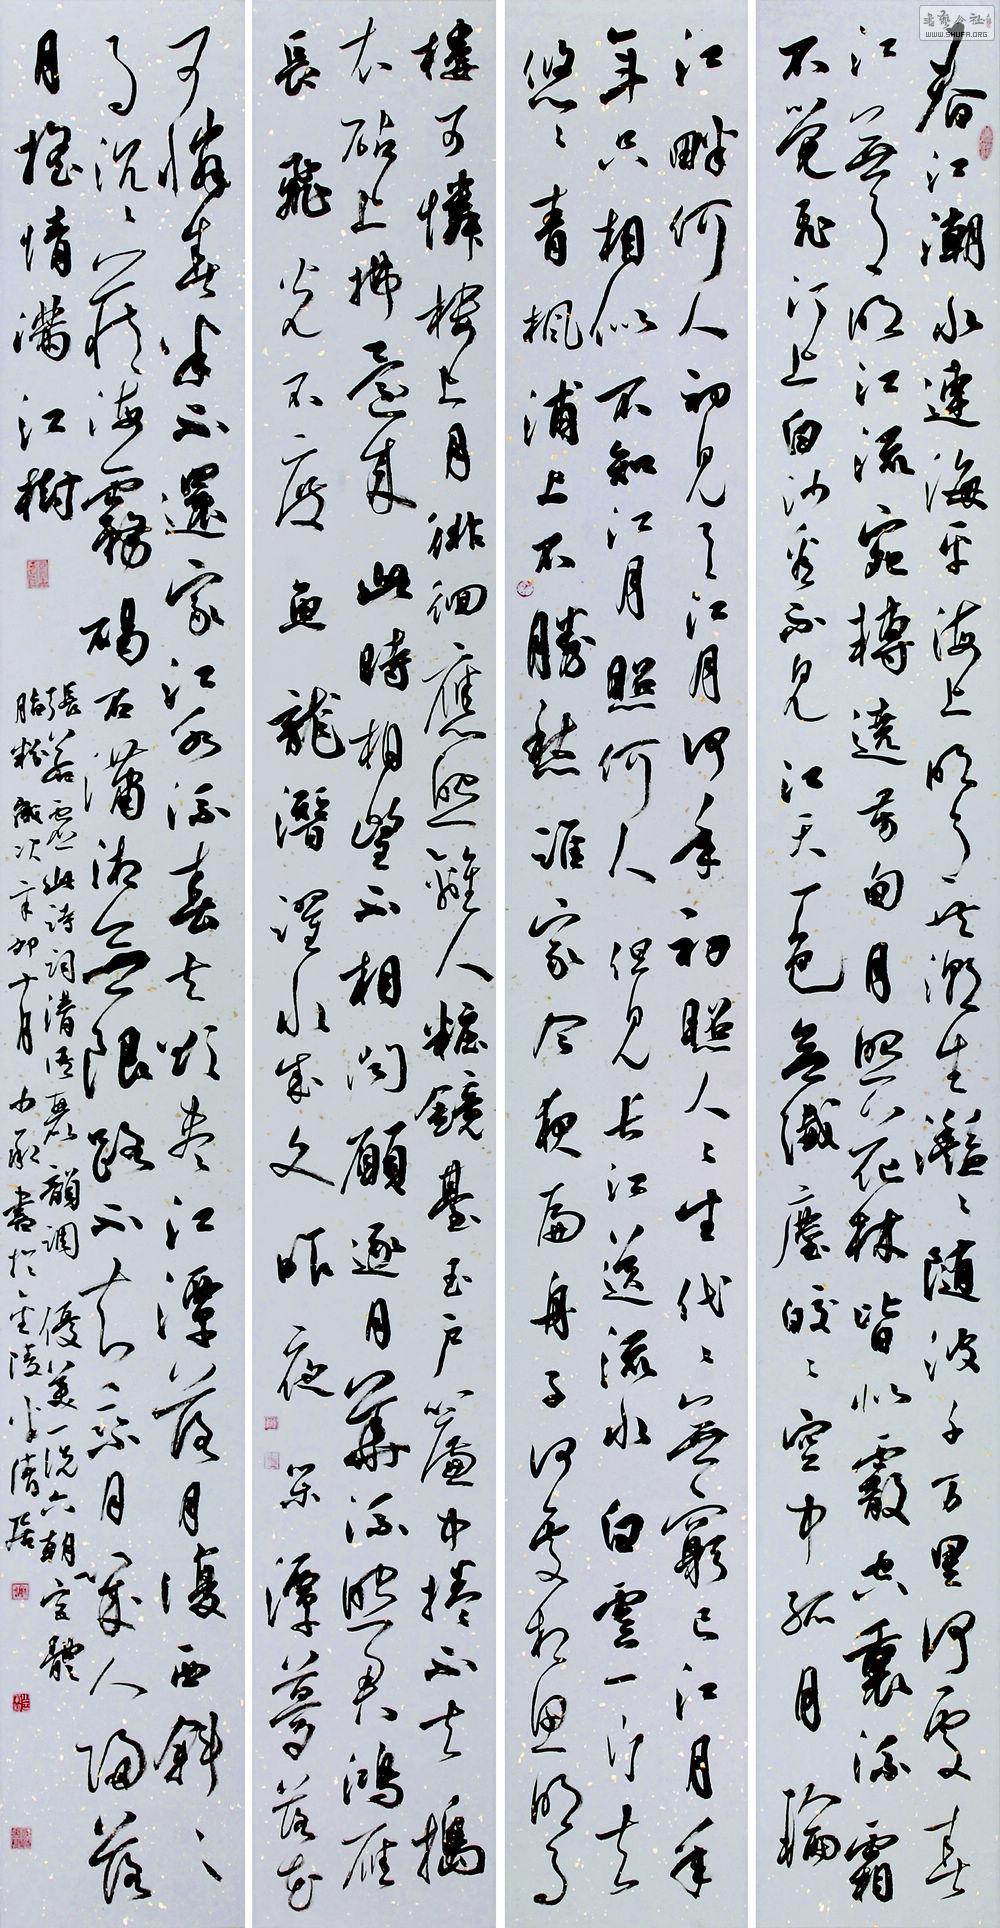 春江潮水連海平海上明月共潮生灩〻隨波千万里何處春
江無月明江流宛轉遶芳甸月照花林皆似霰空裏流霜
不覺飛汀上白沙看不見江天一色無纖塵皎〻空中孤月輪
江畔何人初見月江月何年初照人〻生代〻無窮已江月年
年只相似不知江月照何人但見長江送流水白雲一片去
悠〻青楓浦上不勝愁誰家今夜扁舟子何處相思明月
樓可憐樓上月徘徊應照離人糚鏡臺玉戶簾中捲不去擣
衣砧上拂還來此時相望不相聞願逐月華流照君鴻雁
長飛光不度魚龍潛躍水成文昨夜閑潭夢落花
可憐春半不還家江水流春去欲盡江潭落月復西斜〻
月沉〻藏海霧碣石瀟湘無限路不知乘月幾人歸落
月搖情滿江樹
張若虛此詩詞清語麗韻調優美一洗六朝宮體
脂粉歲次辛卯十月書於金陵清居
WWW.SHUFA.ORG